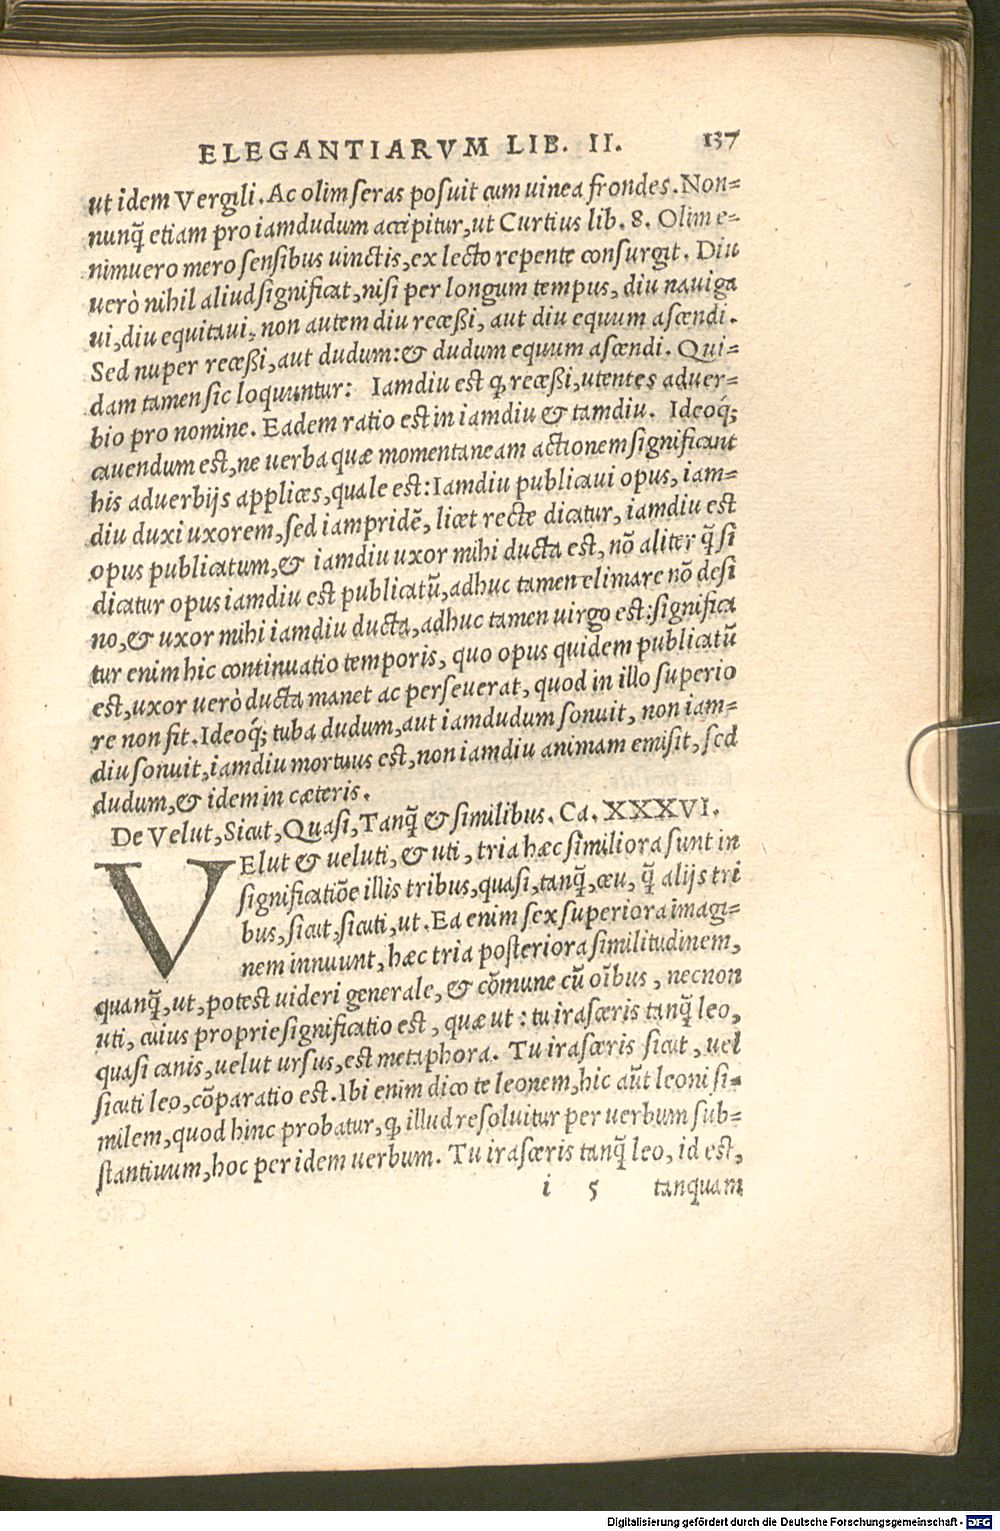 ELEGANTIARVM LIB. II. 137
ut idem Vergili. Ac olim seras posuit cum uinea frondes. Non=
nunq̃ etiam pro iamdudum accipitur, ut Curtius lib. 8. Olim e=
nimuero mero sensibus uinctis, ex lecto repente consurgit. Diu
uerò nihil aliud significat, nisi per longum tempus, diu nauiga
ui, diu equitaui, non autem diu recessi, aut diu equum ascendi.
Sed nuper recessi, aut dudum: & dudum equum ascendi. Qui=
dam tamen sic loquuntur: Iamdiu est ꝙ recessi, utentes aduer=
bio pro nomine. Eadem ratio est in iamdiu & tamdiu. Ideoq́;
cauendum est, ne uerba quæ momentaneam actionem significant
his aduerbijs applices, quale est: Iamdiu publicaui opus, iam=
diu duxi uxorem, sed iampridẽ, licet recte dicatur, iamdiu est
opus publicatum, & iamdiu uxor mihi ducta est, nõ aliter q̃ si
dicatur opus iamdiu est publicatũ, adhuc tamen elimare nõ desi
no, & uxor mihi iamdiu ducta, adhuc tamen uirgo est: significa
tur enim hic continuatio temporis, quo opus quidem publicatũ
est, uxor uerò ducta manet ac perseuerat, quod in illo superio
re non fit. Ideoq́; tuba dudum, aut iamdudum sonuit, non iam=
diu sonuit, iamdiu mortuus est, non iamdiu animam emisit, sed
dudum, & idem in cæteris.
De Velut, Sicut, Quasi, Tanq̃ & similibus. Ca. XXXVI.
VElut & ueluti, & uti, tria hæc similiora sunt in
significatiõe illis tribus, quasi, tanq̃, ceu, q̃ alijs tri
bus, sicut, sicuti, ut. Ea enim sex superiora imagi=
nem innuunt, hæc tria posteriora similitudinem,
quanq̃, ut, potest uideri generale, & cõmune cũ oĩbus, necnon
uti, cuius proprie significatio est, quæ ut: tu irasceris tanq̃ leo,
quasi canis, uelut ursus, est metaphora. Tu irasceris sicut, uel
sicuti leo, cõparatio est. Ibi enim dico te leonem, hic aũt leoni si=
milem, quod hinc probatur, ꝙ illud resoluitur per uerbum sub=
stantiuum, hoc per idem uerbum. Tu irasceris tanq̃ leo, id est,
i 5 tanquam
Digitalisierung gefördert durch die Deutsche Forschungsgemeinschaft - DFG